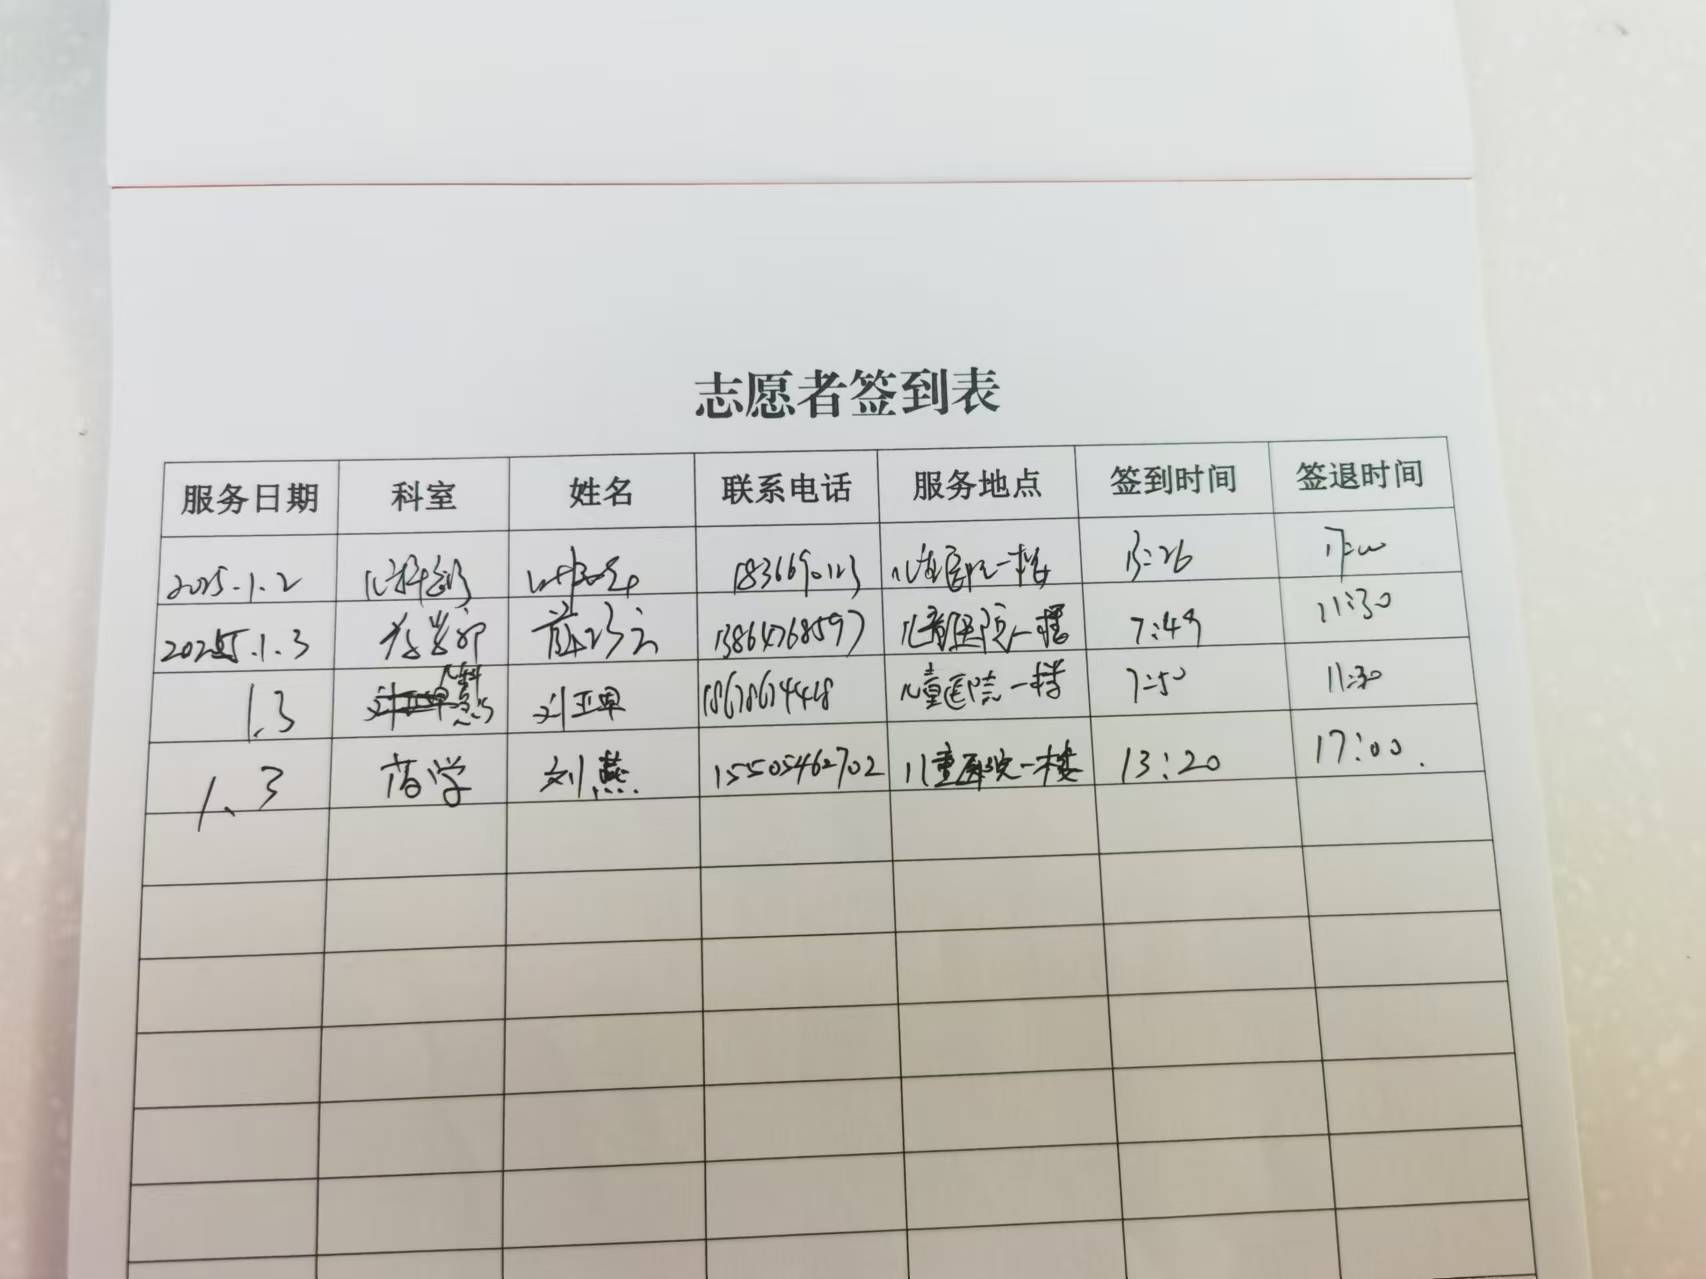 志愿者签到表
服务日期 科室 姓名 联系电话 服务地点 签到时间 签退时间
2025.1.2 儿科 一楼 17:00
2025.1.3 13864768597 儿童医院一楼 7:49 11:30
1.3 儿科 刘亚 儿童医院一楼 7:50 11:30
1.3 药学 刘燕 15505462702 儿童医院一楼 13:20 17:00